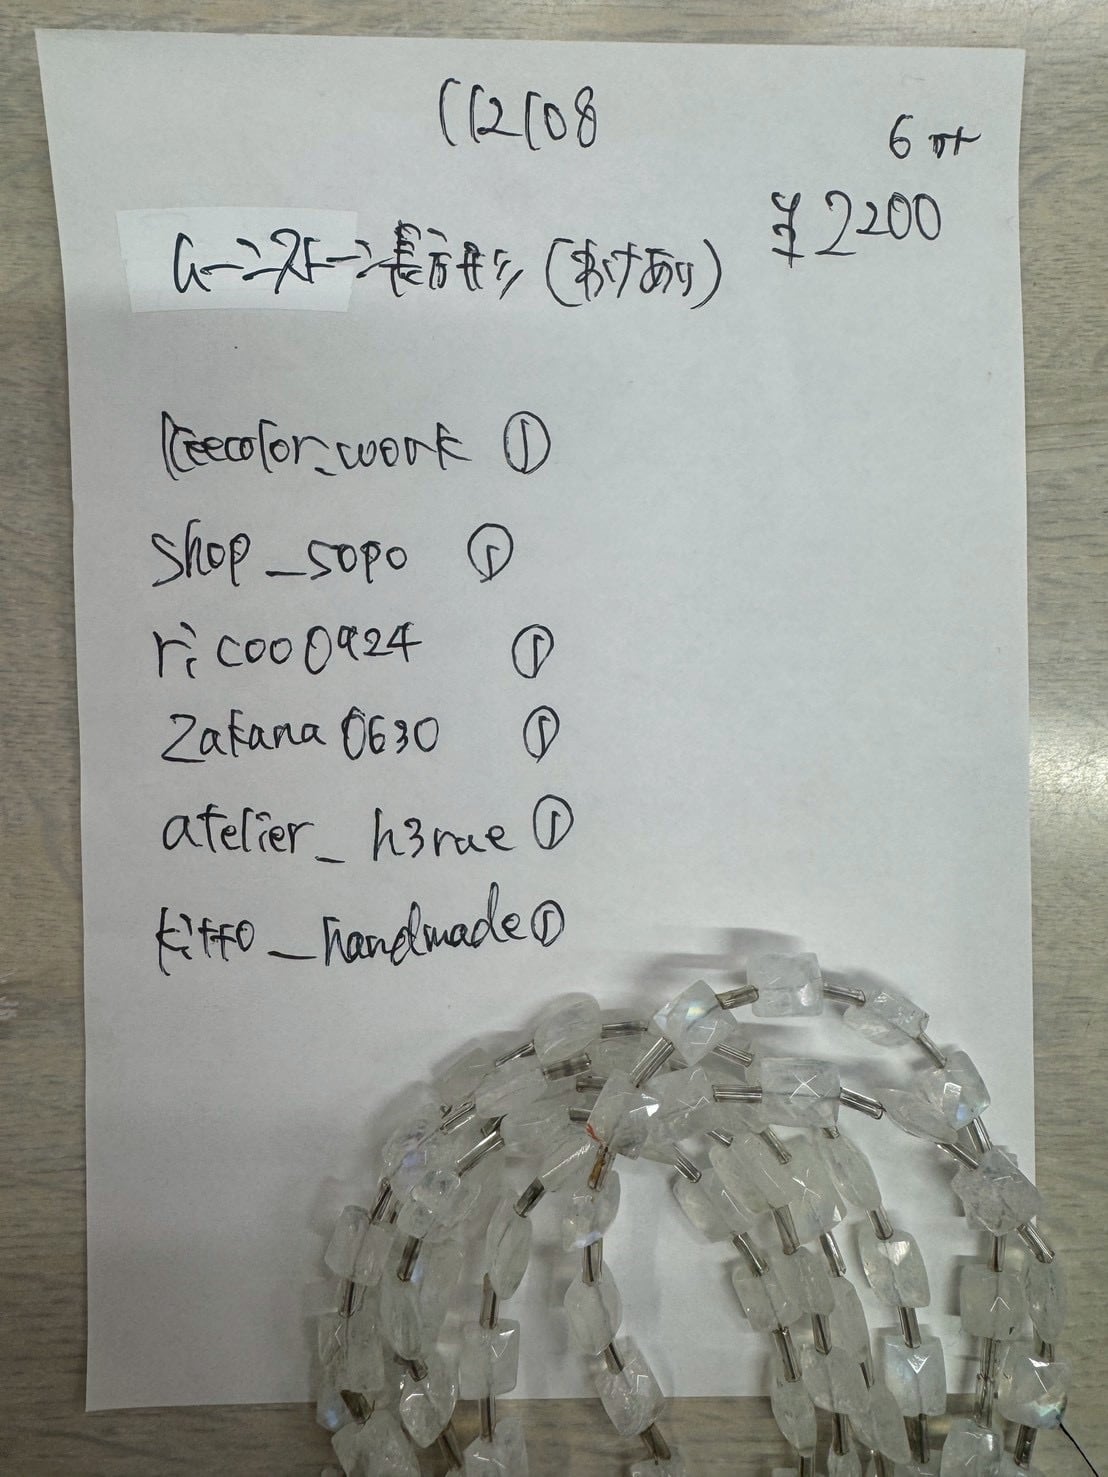 112108
6 m
¥2200
ムーンストーン長方形 (わけあり)
Keecolor_work ①
shop_sopo ①
ricoo0924 ①
Zakana0630 ①
atelier_h3rae ①
kitto_handmade ①